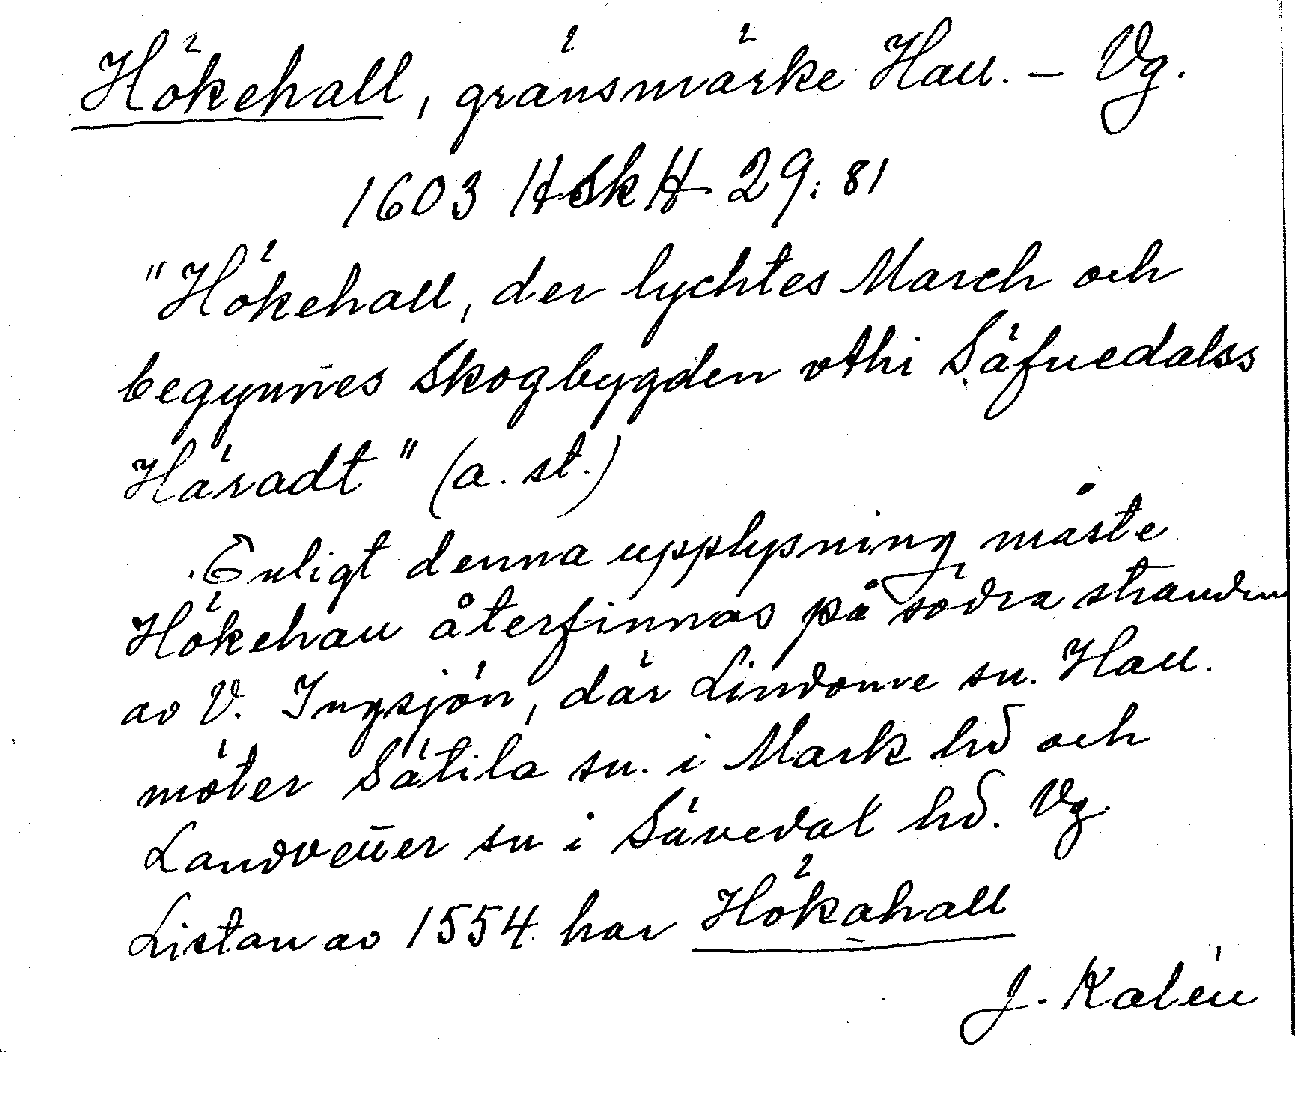 Hökehall, gränsmärke Hall. - Vg.
1603 HSkH 29:81
"Hökehall, der lychtes March och
begynnes Skogbygden vthi Säfuedalss
Häradt" (a. st.)
Enligt denna upplysning måste
Hökehall återfinnas på södra stranden
av V. Ingsjön, där Lindome sn. Hall.
möter Sätila sn. i Mark hd och
Landvetter sn i Sävedal hd. Vg
Listan av 1554 har Hökahall
J. Kalén